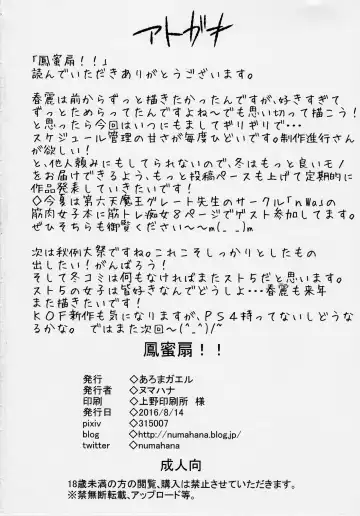 アトガキ
「鳳蜜扇!!」
読んでいただきありがとうございます。
春麗は前からずっと描きたかったんですが、好きすぎて
ずっとためらってたんですよね～でも思い切って描こう!
と思ったら今回はいつにもましてギリギリで・・・
スケジュール管理の甘さが毎度ひどいです。制作進行さん
が欲しい!
と、他人頼みにもしてられないので、冬はもっと良いモノ
をお届けできるよう、もっと投稿ペースも上げて定期的に
作品発表していきたいです!
◇今夏は第六天魔王グレート先生のサークル「nWa」の
筋肉女子本に筋トレ痴女8ページでゲスト参加してます。
ぜひそちらも御覧ください～～m(_ _)m
次は秋例大祭ですね。これこそしっかりとしたもの
出したい!がんばろう!
そして冬コミは何もなければまたスト5だと思います。
スト5の女子は皆好きなんでどうしよ・・・春麗も来年
また描きたいです!
KOF新作も気になりますが、PS4持ってないしどうな
るかな。 ではまた次回～(^_^)/~
鳳蜜扇!!
発行 ◇あろまガエル
発行者 ◇ヌマハナ
印刷 ◇上野印刷所 様
発行日 ◇2016/8/14
pixiv ◇315007
blog ◇http://numahana.blog.jp/
twitter ◇numahana
成人向
18歳未満の方の閲覧、購入は禁止させていただきます。
※禁無断転載、アップロード等。